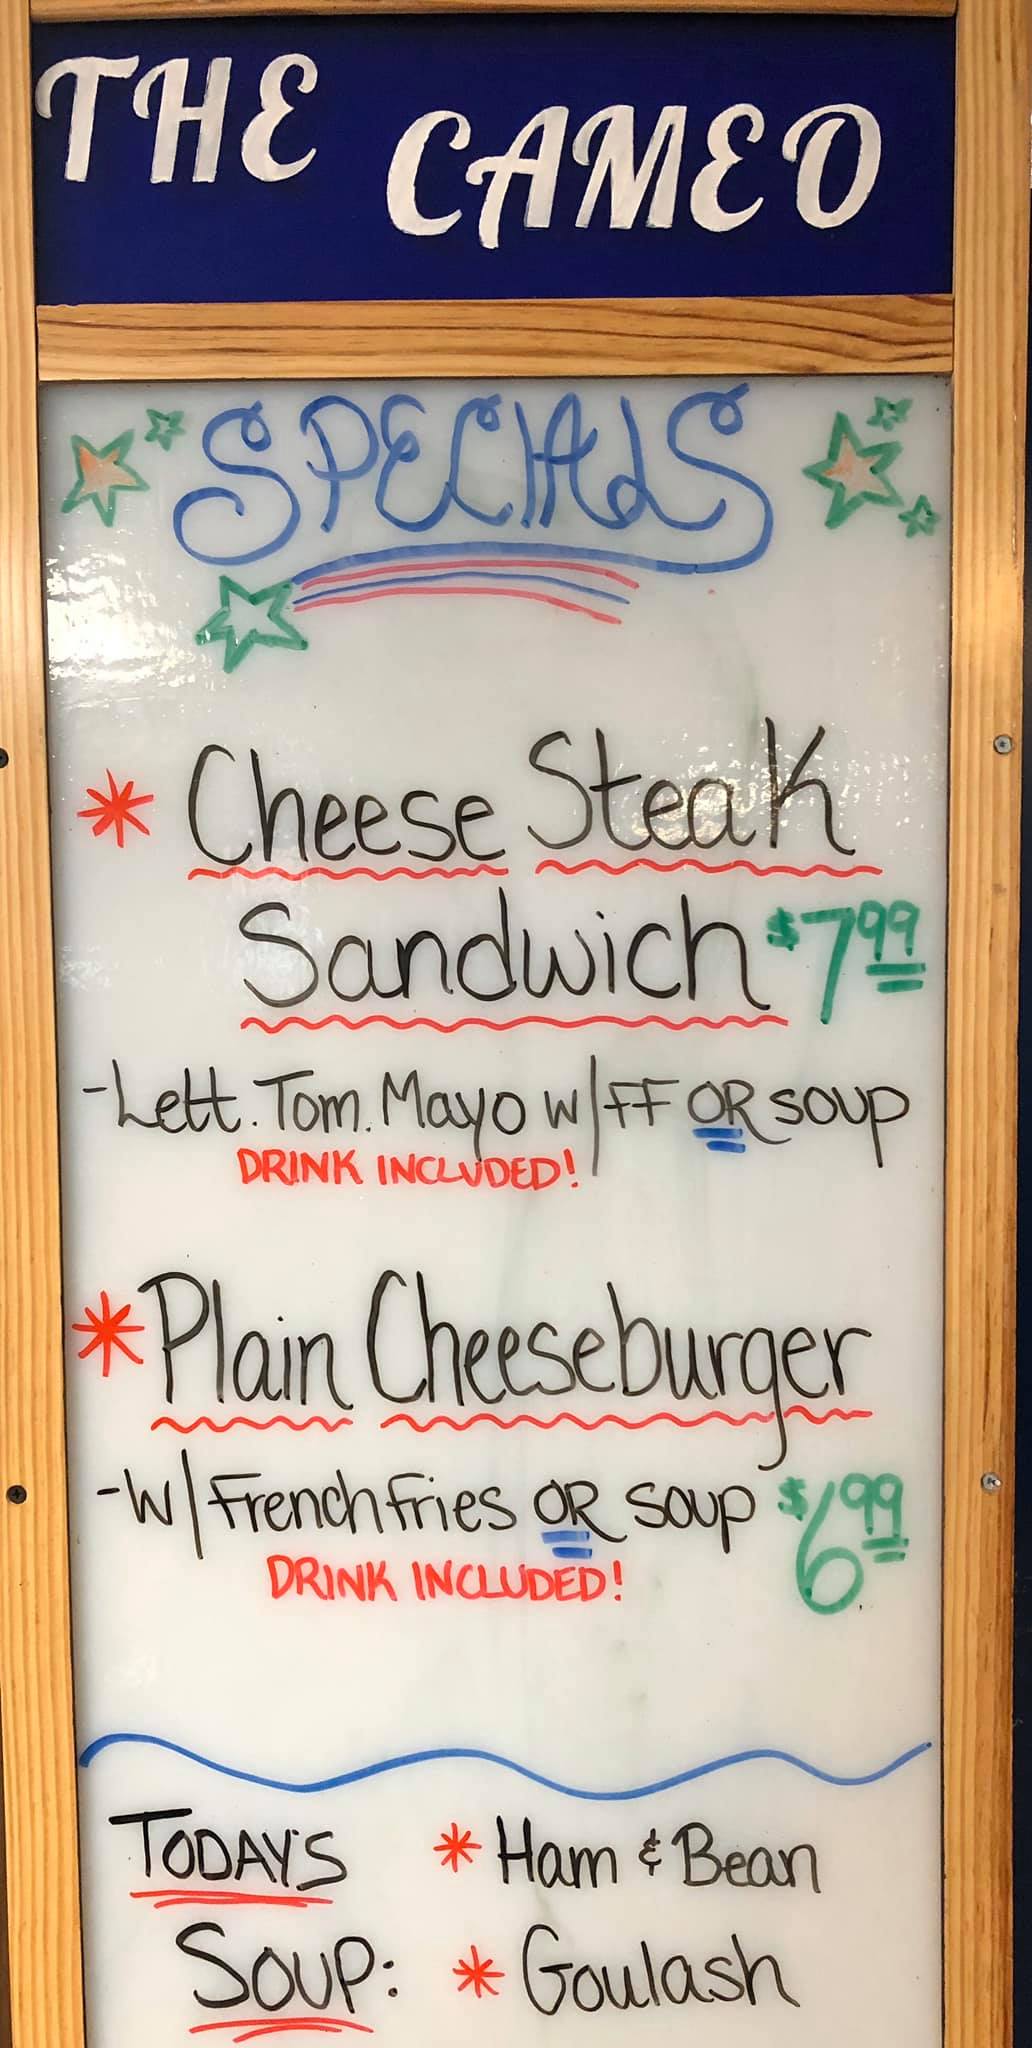 THE CAMEO
SPECIALS
* Cheese Steak
Sandwich $7.99
-Lett. Tom. Mayo w/FF OR soup
DRINK INCLUDED!
* Plain Cheeseburger
-w/French fries OR soup $6.99
DRINK INCLUDED!
TODAY'S * Ham & Bean
SOUP: * Goulash